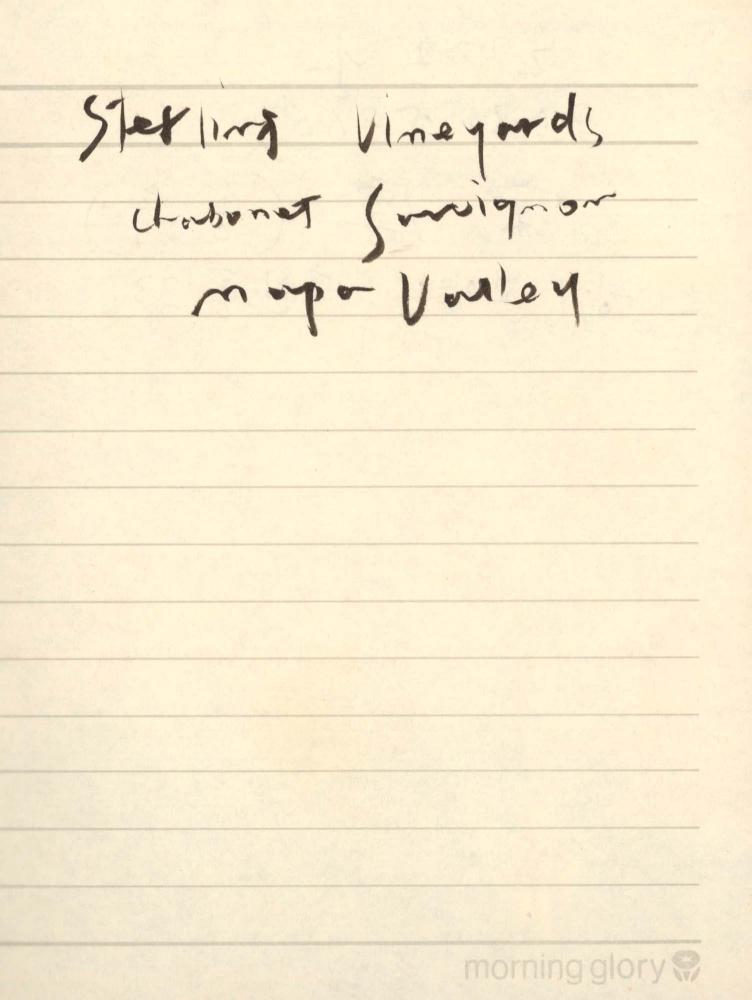 Sterling Vineyards
Chabonet Sauvignon
napa Valley
morning glory